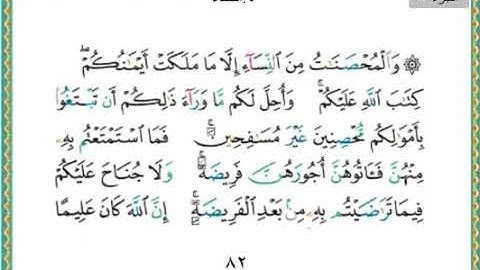 ۞ وَالْمُحْصَنَاتُ مِنَ النِّسَاءِ إِلَّا مَا مَلَكَتْ أَيْمَانُكُمْ ۖ
كِتَابَ اللَّهِ عَلَيْكُمْ ۚ وَأُحِلَّ لَكُم مَّا وَرَاءَ ذَٰلِكُمْ أَن تَبْتَغُوا
بِأَمْوَالِكُم مُّحْصِنِينَ غَيْرَ مُسَافِحِينَ ۚ فَمَا اسْتَمْتَعْتُم بِهِ
مِنْهُنَّ فَآتُوهُنَّ أُجُورَهُنَّ فَرِيضَةً ۚ وَلَا جُنَاحَ عَلَيْكُمْ
فِيمَا تَرَاضَيْتُم بِهِ مِن بَعْدِ الْفَرِيضَةِ ۚ إِنَّ اللَّهَ كَانَ عَلِيمًا
٨٢